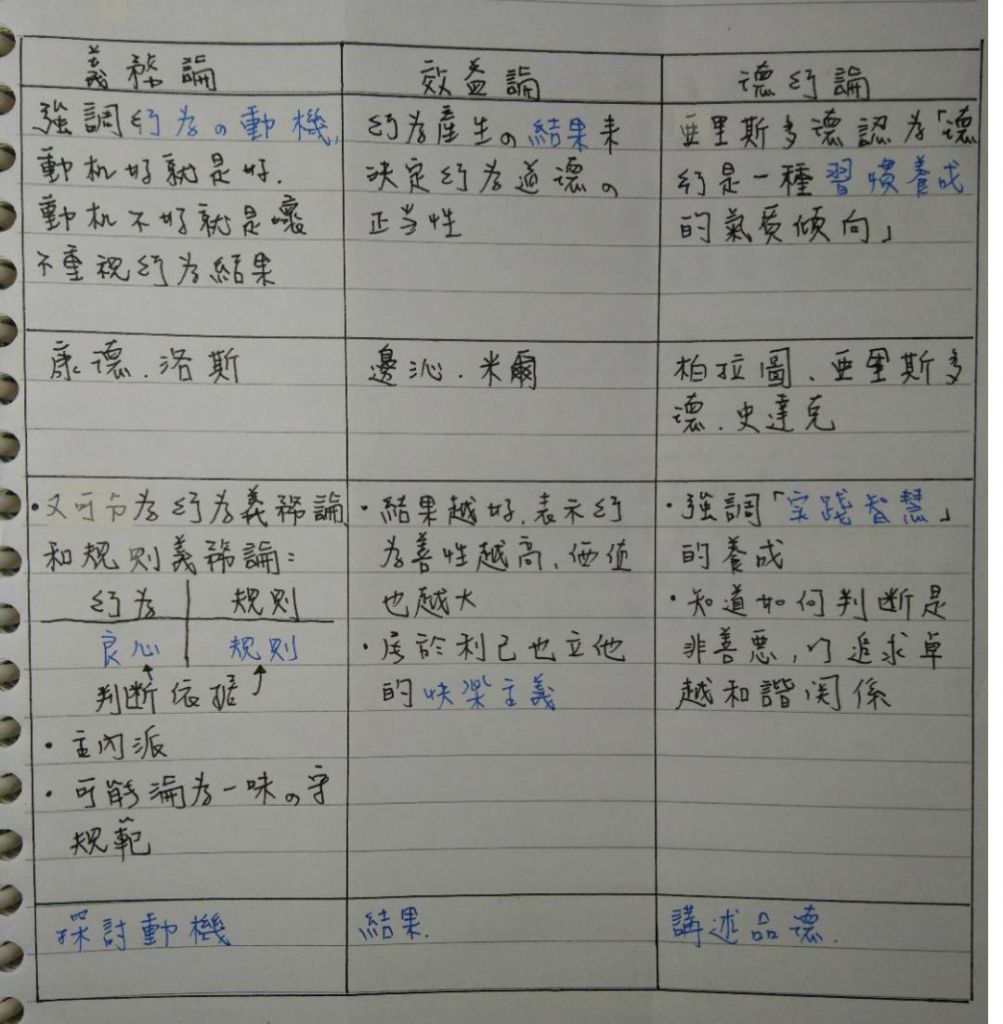 義務論
強調行為の動機,
動机好就是好.
動机不好就是壞
不重視行為結果
效益論
行為產生の結果來
決定行為道德の
正当性
德行論
亞里斯多德認為「德
行是一種習慣養成
的氣質傾向」
康德.洛斯
邊沁.米爾
柏拉圖、亞里斯多
德.史達克
·又可分為行為義務論
和規則義務論:
行為 規則
良心 規則
判断依据
·主內派
·可能淪為一味の守
規範
·結果越好,表示行
為善性越高、価值
也越大
·居於利己也立他
的快樂主義
·強調「实踐智慧」
的養成
·知道如何判断是
非善悪,以追求卓
越和諧関係
探討動機
結果.
講述品德.